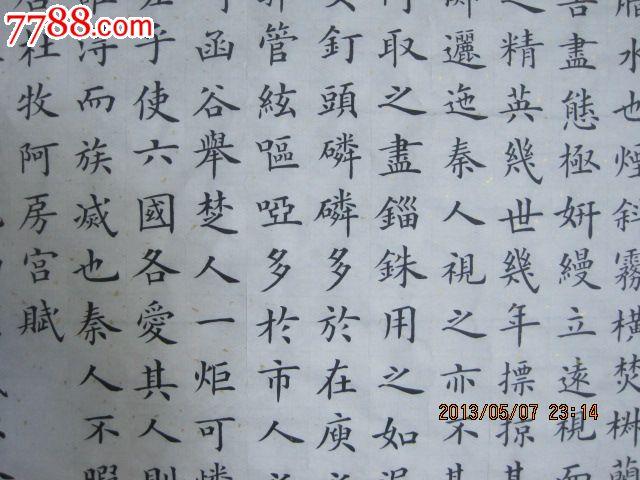 7788.com
水也煙斜霧橫焚椒蘭
容盡態極妍縵立遠視而
之精英幾世幾年摽掠其
邐迤秦人視之亦不甚
取之盡錙銖用之如泥
女釘頭磷磷多於在庾
管絃嘔啞多於市人
函谷舉楚人一炬可憐
乎使六國各愛其人則
得而族滅也秦人不暇
杜牧阿房宮賦
2013/05/07 23:14